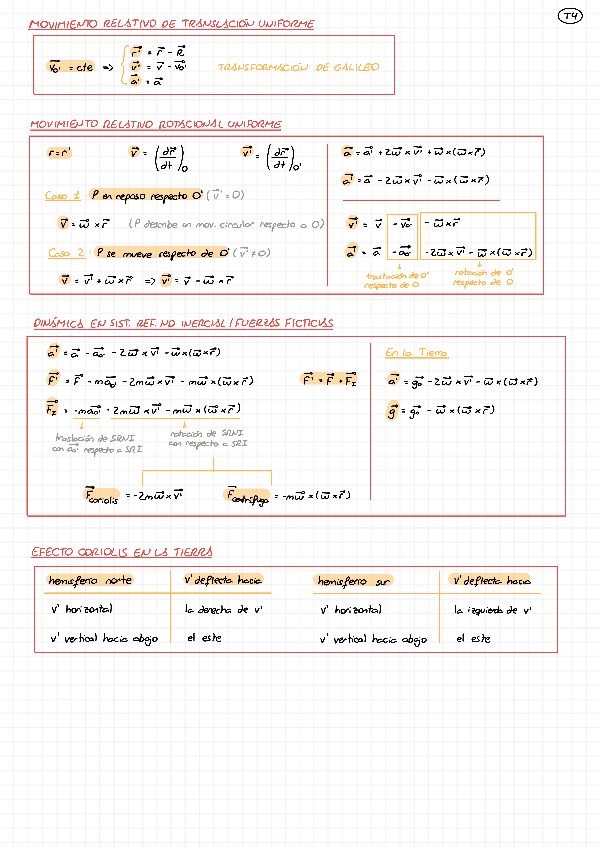 T4
MOVIMIENTO RELATIVO DE TRANSLACIÓN UNIFORME
v⃗₀' = cte ⇒ { r⃗' = r⃗ - R⃗
v⃗' = v⃗ - v⃗₀'
a⃗' = a⃗
TRANSFORMACIÓN DE GALILEO
MOVIMIENTO RELATIVO ROTACIONAL UNIFORME
r = r' v⃗ = (dr⃗/dt)₀ v⃗' = (dr⃗/dt)₀'
Caso 1: P en reposo respecto O' (v⃗' = 0)
v⃗ = ω⃗ × r⃗ (P describe un mov. circular respecto a O)
Caso 2: P se mueve respecto de O' (v⃗' ≠ 0)
v⃗ = v⃗' + ω⃗ × r⃗ ⇒ v⃗' = v⃗ - ω⃗ × r⃗
a⃗ = a⃗' + 2ω⃗ × v⃗' + ω⃗ × (ω⃗ × r⃗)
a⃗' = a⃗ - 2ω⃗ × v⃗' - ω⃗ × (ω⃗ × r⃗)
v⃗' = v⃗ - v⃗₀' - ω⃗ × r⃗
a⃗' = a⃗ - a⃗₀' - 2ω⃗ × v⃗' - ω⃗ × (ω⃗ × r⃗)
traslación de O' respecto de O
rotación de O' respecto de O
DINÁMICA EN SIST. REF. NO INERCIAL / FUERZAS FICTICIAS
a⃗' = a⃗ - a⃗₀' - 2ω⃗ × v⃗' - ω⃗ × (ω⃗ × r⃗)
F⃗' = F⃗ - ma⃗₀' - 2mω⃗ × v⃗' - mω⃗ × (ω⃗ × r⃗) F⃗' = F⃗ + F⃗_I
F⃗_I = -ma⃗₀' - 2mω⃗ × v⃗' - mω⃗ × (ω⃗ × r⃗)
traslación de SRNI
con a⃗₀' respecto a SRI
rotación de SRNI
con respecto a SRI
F⃗coriolis = -2mω⃗ × v⃗' F⃗centrífuga = -mω⃗ × (ω⃗ × r⃗)
En la Tierra
a⃗' = g⃗₀ - 2ω⃗ × v⃗' - ω⃗ × (ω⃗ × r⃗)
g⃗ = g⃗₀ - ω⃗ × (ω⃗ × r⃗)
EFECTO CORIOLIS EN LA TIERRA
hemisferio norte v' deflecta hacia hemisferio sur v' deflecta hacia
v' horizontal la derecha de v' v' horizontal la izquierda de v'
v' vertical hacia abajo el este v' vertical hacia abajo el este